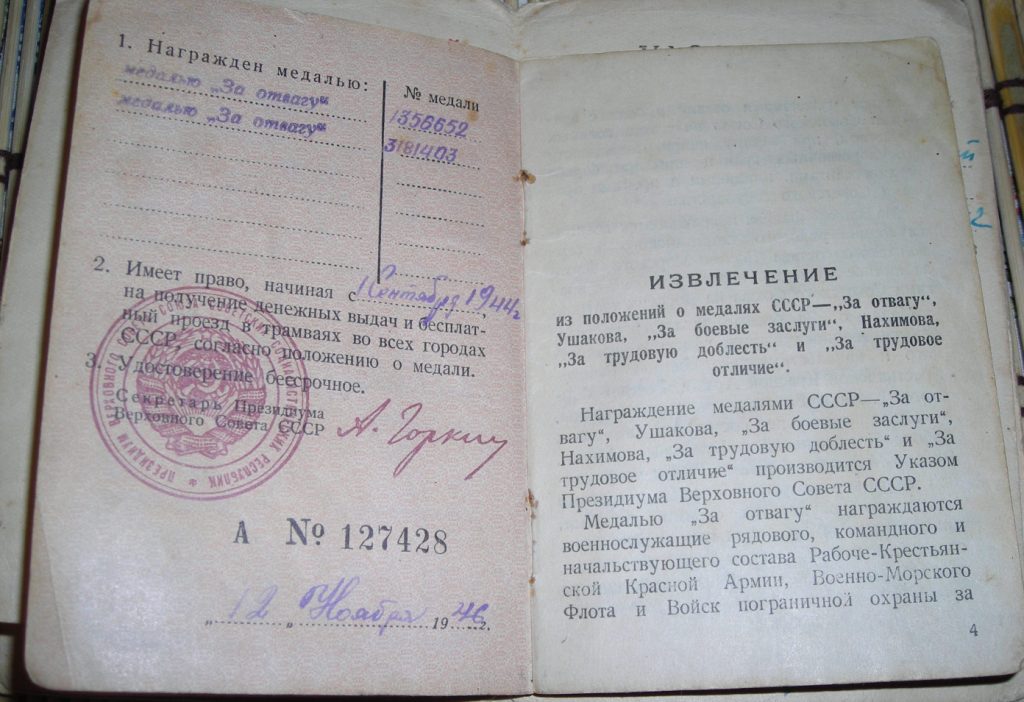 1. Награжден медалью:
№ медали
медалью „За отвагу“
1356652
медалью „За отвагу“
3181403
2. Имеет право, начиная с 1 Сентября 1944 г.,
на получение денежных выдач и бесплат-
ный проезд в трамваях во всех городах
СССР, согласно положению о медали.
3. Удостоверение бессрочное.
Секретарь Президиума
Верховного Совета СССР
А. Горкин
ПРЕЗИДИУМ ВЕРХОВНОГО СОВЕТА СОЮЗА СОВЕТСКИХ СОЦИАЛИСТИЧЕСКИХ РЕСПУБЛИК
А № 127428
„12„ Ноября 1946.
ИЗВЛЕЧЕНИЕ
из положений о медалях СССР—„За отвагу“,
Ушакова, „За боевые заслуги“, Нахимова,
„За трудовую доблесть“ и „За трудовое
отличие“.
Награждение медалями СССР—„За от-
вагу“, Ушакова, „За боевые заслуги“,
Нахимова, „За трудовую доблесть“ и „За
трудовое отличие“ производится Указом
Президиума Верховного Совета СССР.
Медалью „За отвагу“ награждаются
военнослужащие рядового, командного и
начальствующего состава Рабоче-Крестьян-
ской Красной Армии, Военно-Морского
Флота и Войск пограничной охраны за
4
й
2